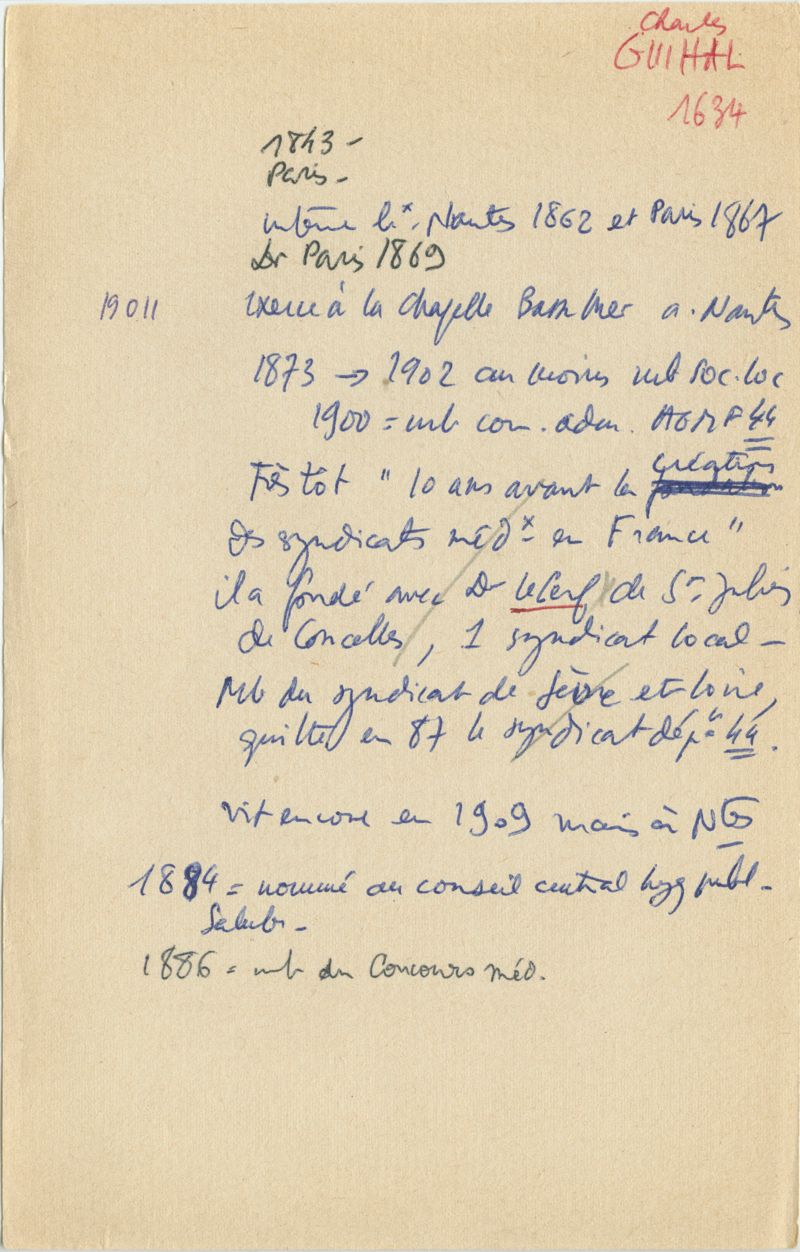 Charles
GUIHAL
1634
1843 -
Paris -
interne hx. Nantes 1862 et Paris 1867
Dr Paris 1869
19011 Exerce à la Chapelle Basse Mer a. Nantes
1873 → 1902 au moins mb soc. loc
1900 = mb com. adm. AGMF 44
création
Très tôt " 10 ans avant la fondation
des syndicats médx en France "
il a fondé avec Dr Lecerf de St Julien
de Concelles, 1 syndicat local -
Mb du syndicat de Sèvre et Loire,
quitte en 87 le syndicat dépal 44.
vit encore en 1909 mais à Ntes
1884 = nommé au conseil central hyg publ -
Salubr -
1886 = mb du Concours méd.